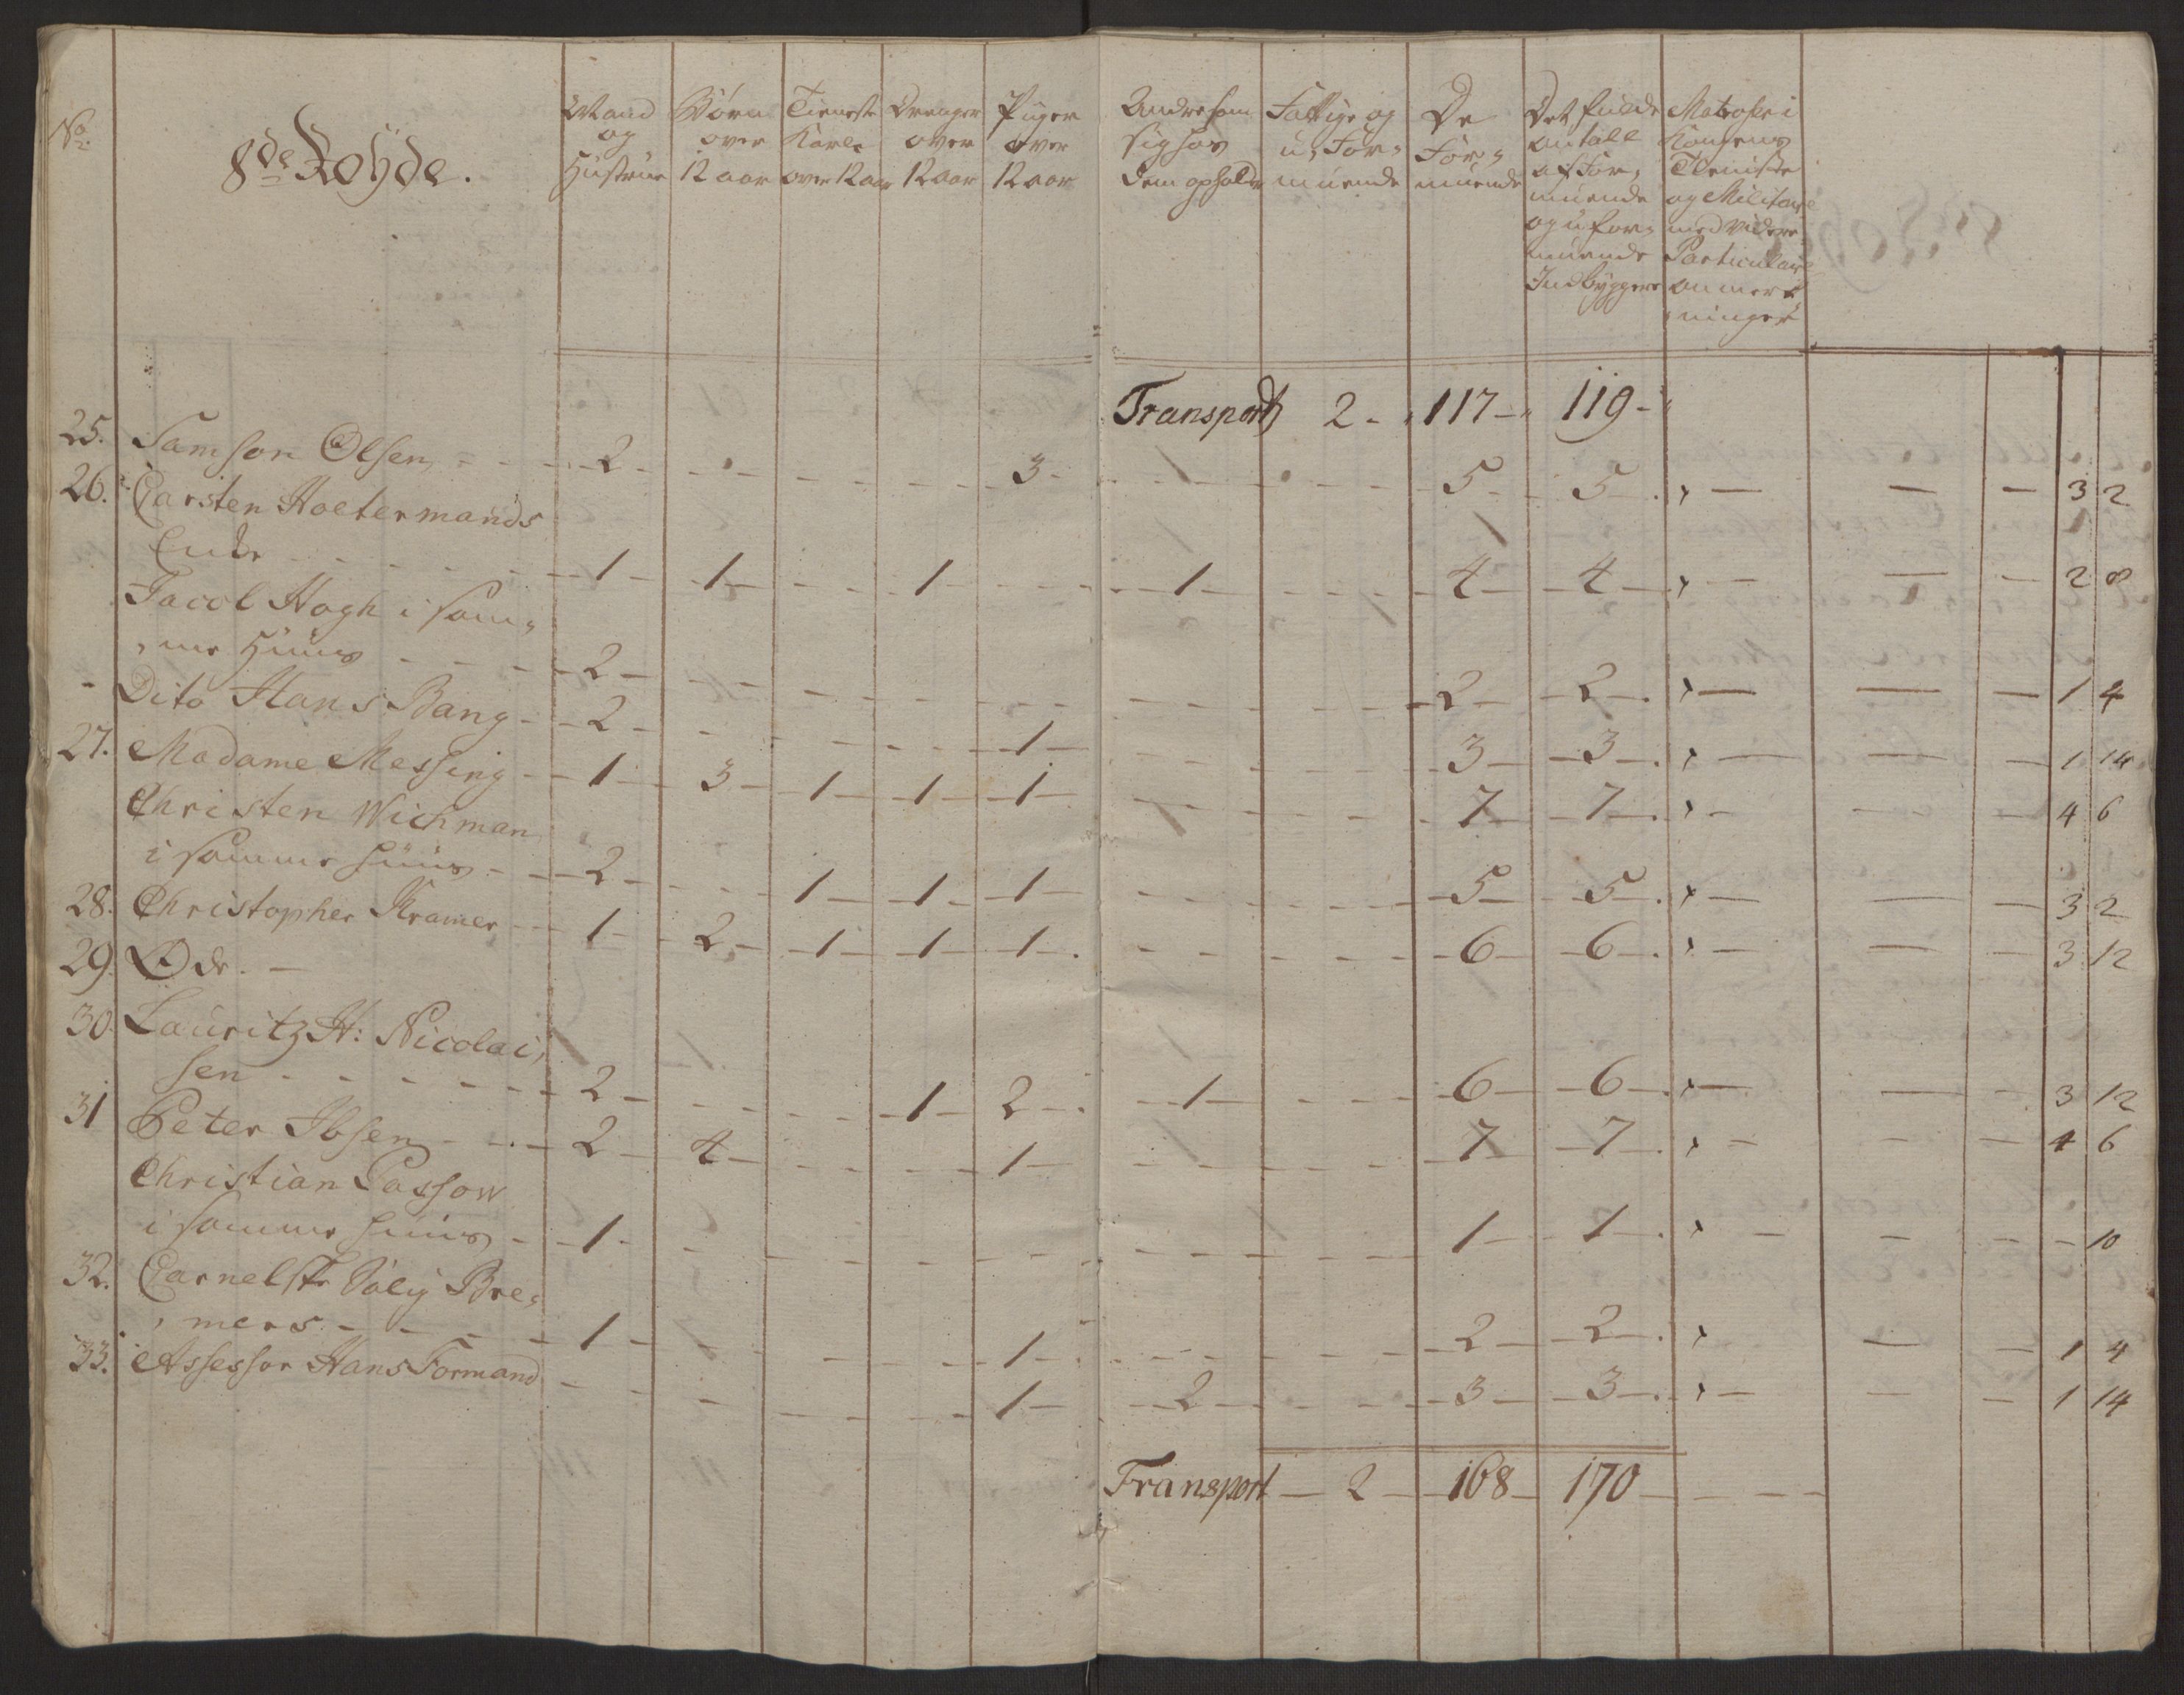 No
8de Royde.
Mand og Hustrue
Børn over 12 aar
Tieneste Karle over 12 aar
Drenger over 12 aar
Piger over 12 aar
Andre som sig hos dem opholder
Fattige og u-formuende
De Formuende
Det fulde antall af Formuende og uformuende Indbyggere
Matroser i Kongens Tieniste og Militaire med videre Particulaire anmerkninger
Transport 2 - 117 - 119 -
25. Samson Olsen - - 2 - - - 3 - - - 5 - 5 - - - 3 2
26. Carsten Hoetermands
Enke - - - 1 - 1 - - 1 - - 1 - - 4 - 4 - - - 2 8
Jacob Hogh i sam-
me Huus - - - 2 - - - - - - 2 - 2 - - - 1 4
- Dito Hans Bang - 2 - - - - 1 - - - 3 - 3 - - - 1 14
27. Madame Messing - 1 - 3 - 1 - 1 - 1 - - - 7 - 7 - - - 4 6
Christen Wichman
i samme huus - - 2 - - 1 - 1 - 1 - - - 5 - 5 - - - 3 2
28. Christopher Kramer - 1 - 2 - 1 - 1 - 1 - - - 6 - 6 - - - 3 12
29. Øde. -
30. Lauritz H: Nicolai,
sen - - - - 2 - - - 1 - 2 - 1 - - 6 - 6 - - - 3 12
31 Peter Ibsen - - 2 - 4 - - - 1 - - - 7 - 7 - - - 4 6
Christian Passow
i samme huus - 1 - - - - - - - 1 - 1 - - - - 10
32. Carnelst Sal Bre-
mers - - - 1 - - - - 1 - - - 2 - 2 - - - 1 4
33. Assessor Hans Formand - - - - 1 - 2 - - 3 - 3 - - - 1 14
Transport - 2 - 168 - 170 - - -